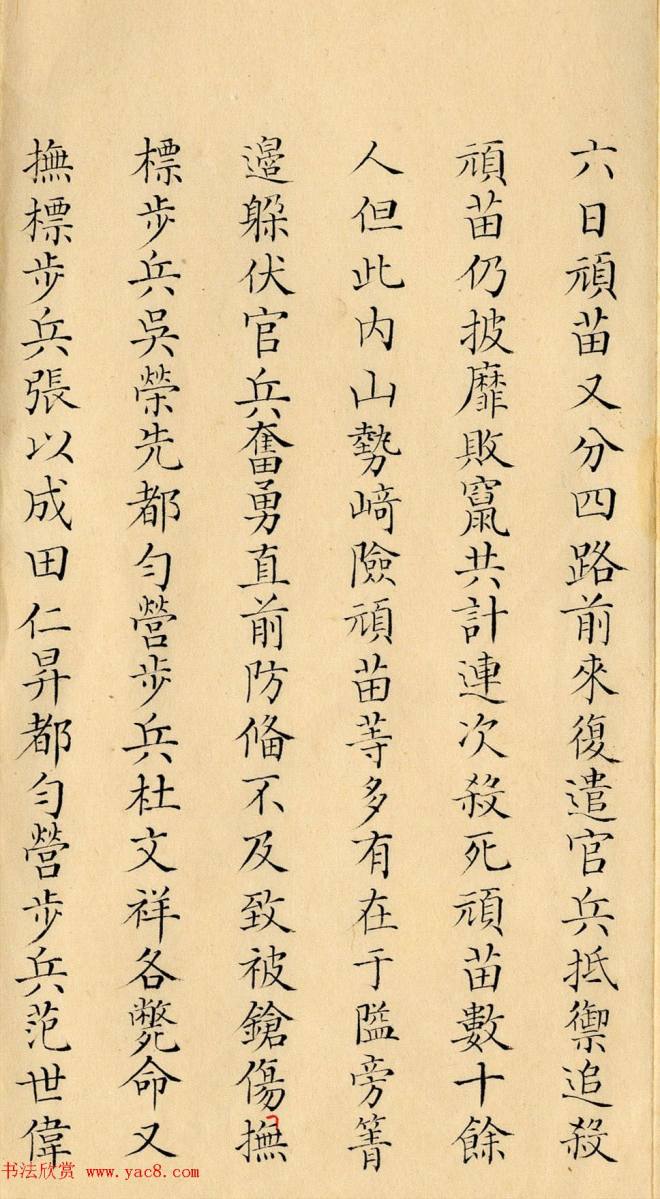 六日頑苗又分四路前來復遣官兵抵禦追殺
頑苗仍披靡敗竄共計連次殺死頑苗數十餘
人但此內山勢﨑險頑苗等多有在于隘旁箐
邉躱伏官兵奮勇直前防俻不及致被鎗傷撫
標步兵吳榮先都勻營步兵杜文祥各斃命又
撫標步兵張以成田仁昇都勻營步兵范世偉
书法欣赏 www.yac8.com